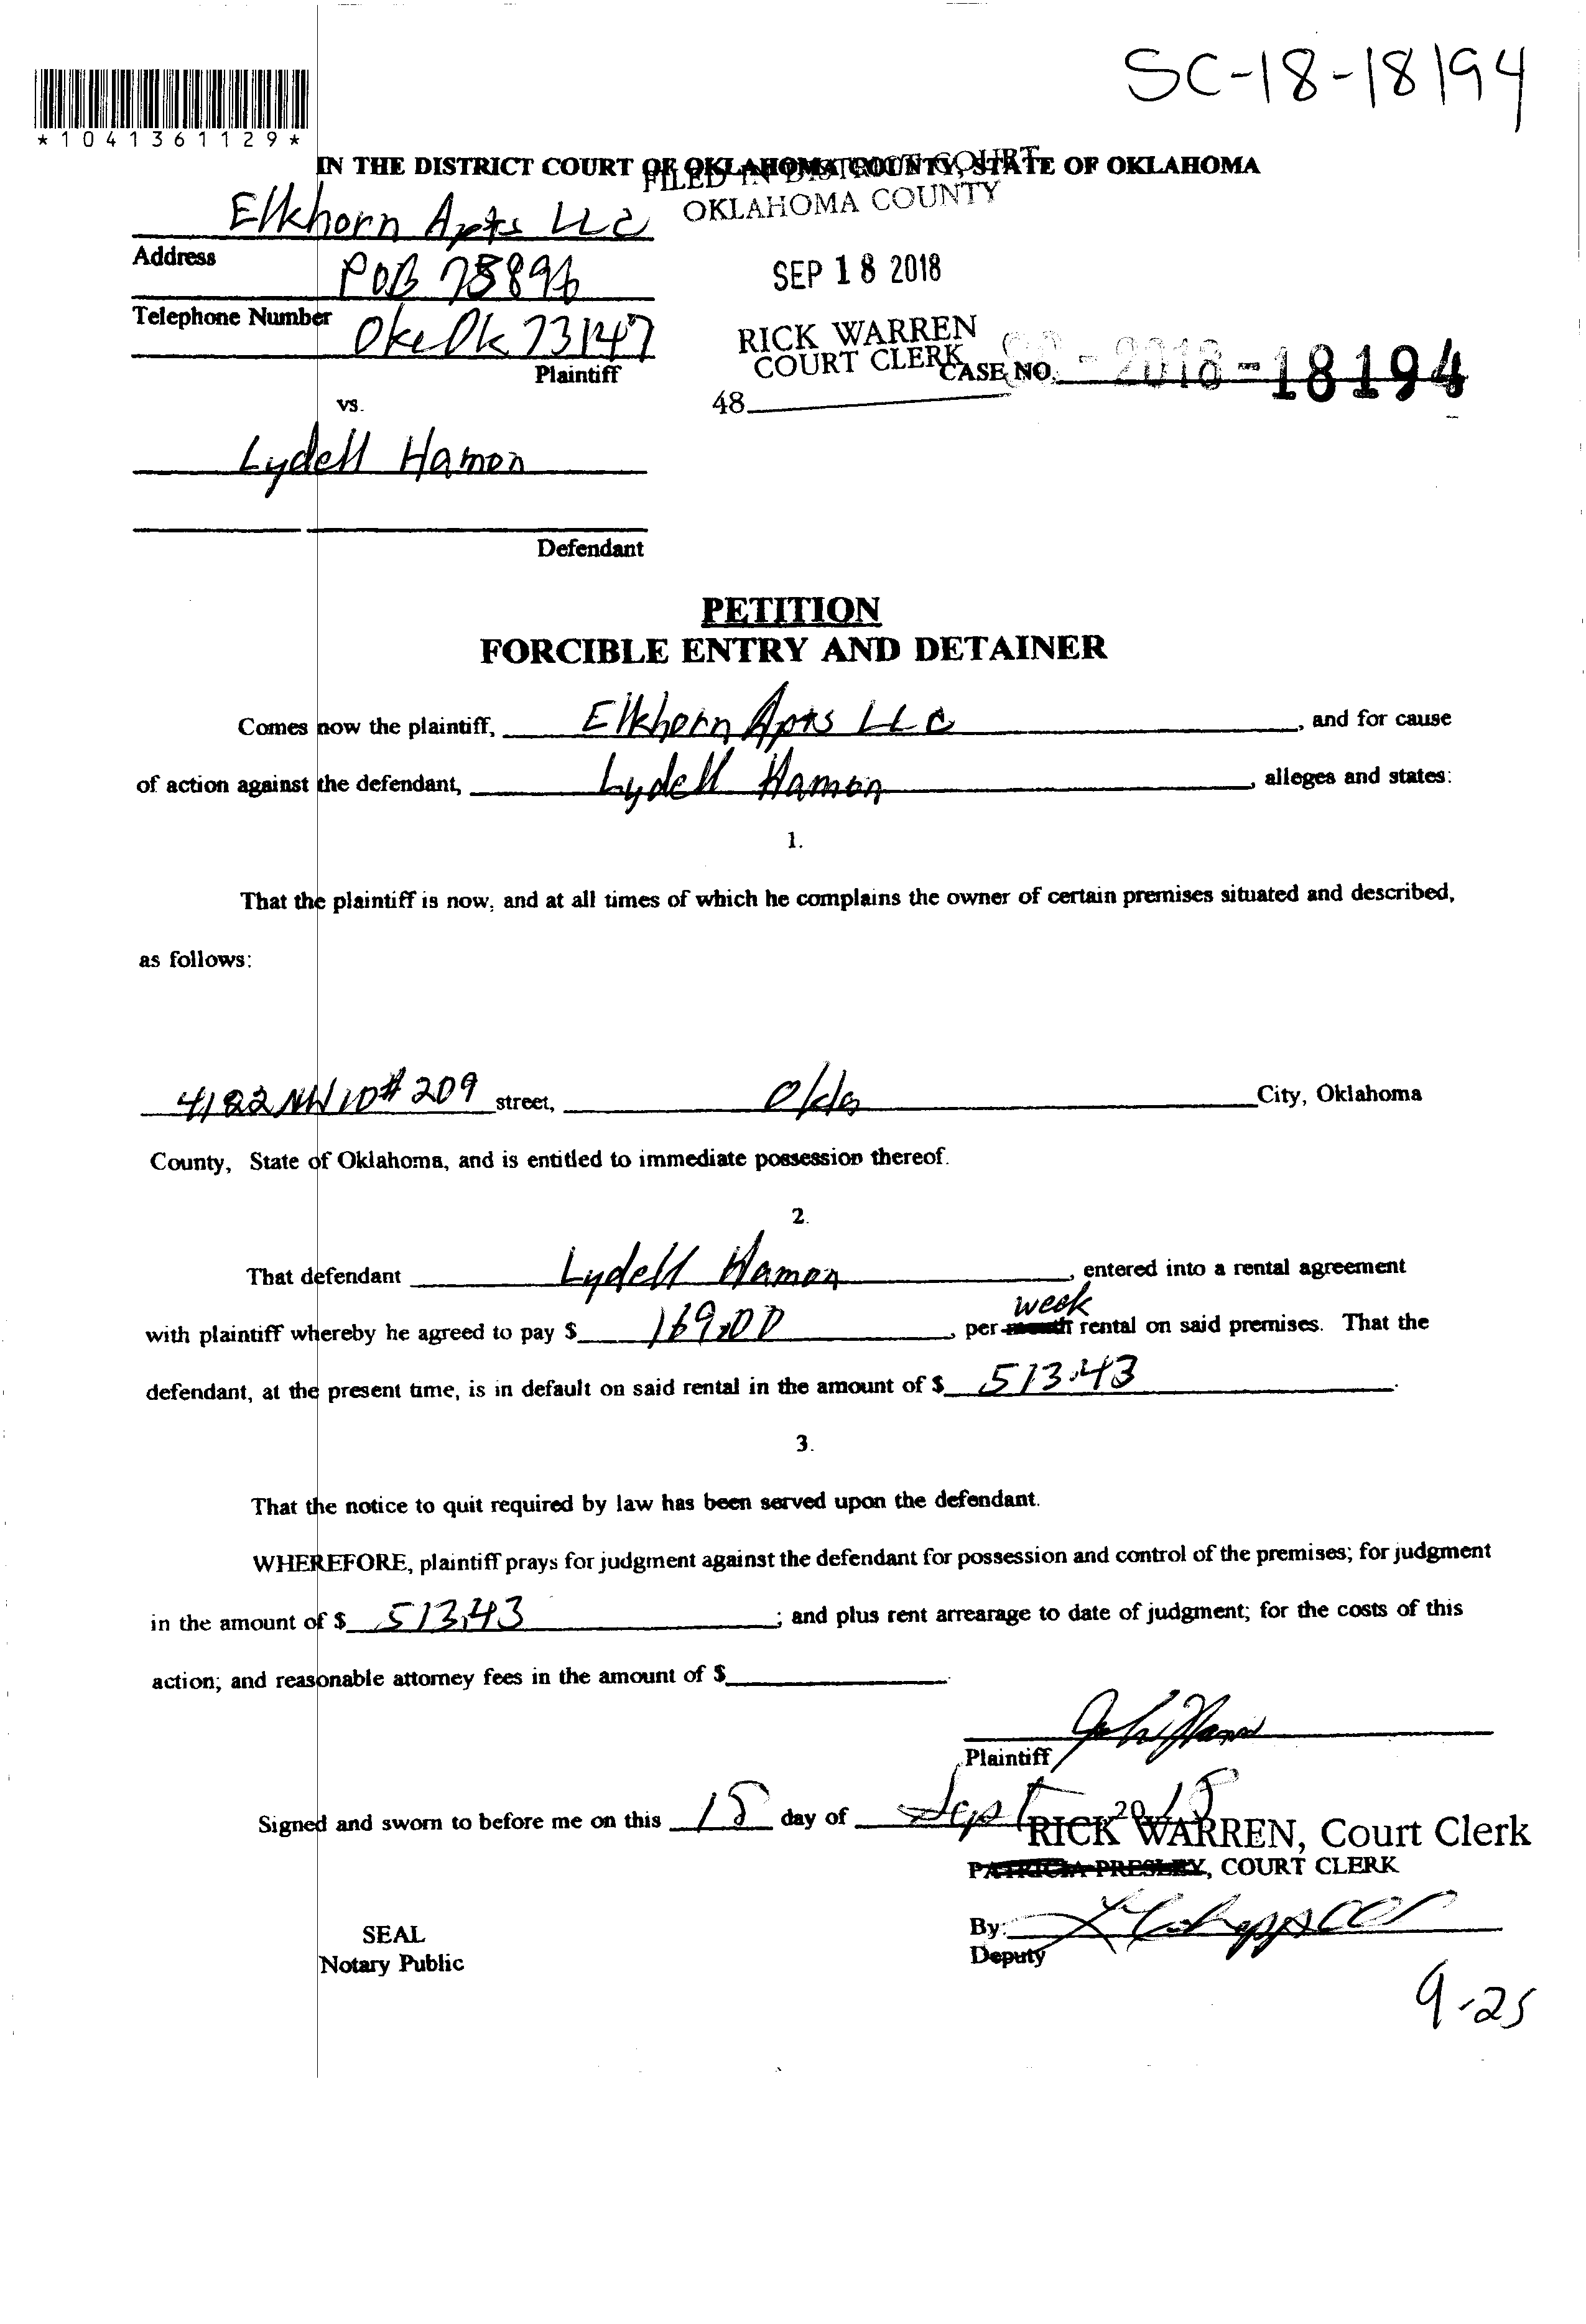 SC-18-18194
*1041361129*
IN THE DISTRICT COURT OF OKLAHOMA COUNTY, STATE OF OKLAHOMA
FILED IN DISTRICT COURT
OKLAHOMA COUNTY
Elkhorn Apts LLC
Address
POB 75896
SEP 18 2018
Telephone Number
OkcOk 73147
RICK WARREN
COURT CLERK
Plaintiff
CASE NO. SC-2018-18194
48
vs.
Lydell Hamon
Defendant
PETITION
FORCIBLE ENTRY AND DETAINER
Comes now the plaintiff, Elkhorn Apts LLC, and for cause
of action against the defendant, Lydell Hamon, alleges and states:
1.
That the plaintiff is now, and at all times of which he complains the owner of certain premises situated and described,
as follows:
4122 NW 10 # 209 street, City, Oklahoma
County, State of Oklahoma, and is entitled to immediate possession thereof.
2.
That defendant Lydell Hamon, entered into a rental agreement
week
with plaintiff whereby he agreed to pay $ 169.00, per month rental on said premises. That the
defendant, at the present time, is in default on said rental in the amount of $ 513.43.
3.
That the notice to quit required by law has been served upon the defendant.
WHEREFORE, plaintiff prays for judgment against the defendant for possession and control of the premises; for judgment
in the amount of $ 513.43; and plus rent arrearage to date of judgment; for the costs of this
action; and reasonable attorney fees in the amount of $.
Plaintiff
Signed and sworn to before me on this 18 day of Sept 2018
RICK WARREN, Court Clerk
PATRICIA PRESLEY, COURT CLERK
By:
SEAL
Deputy
Notary Public
9-25